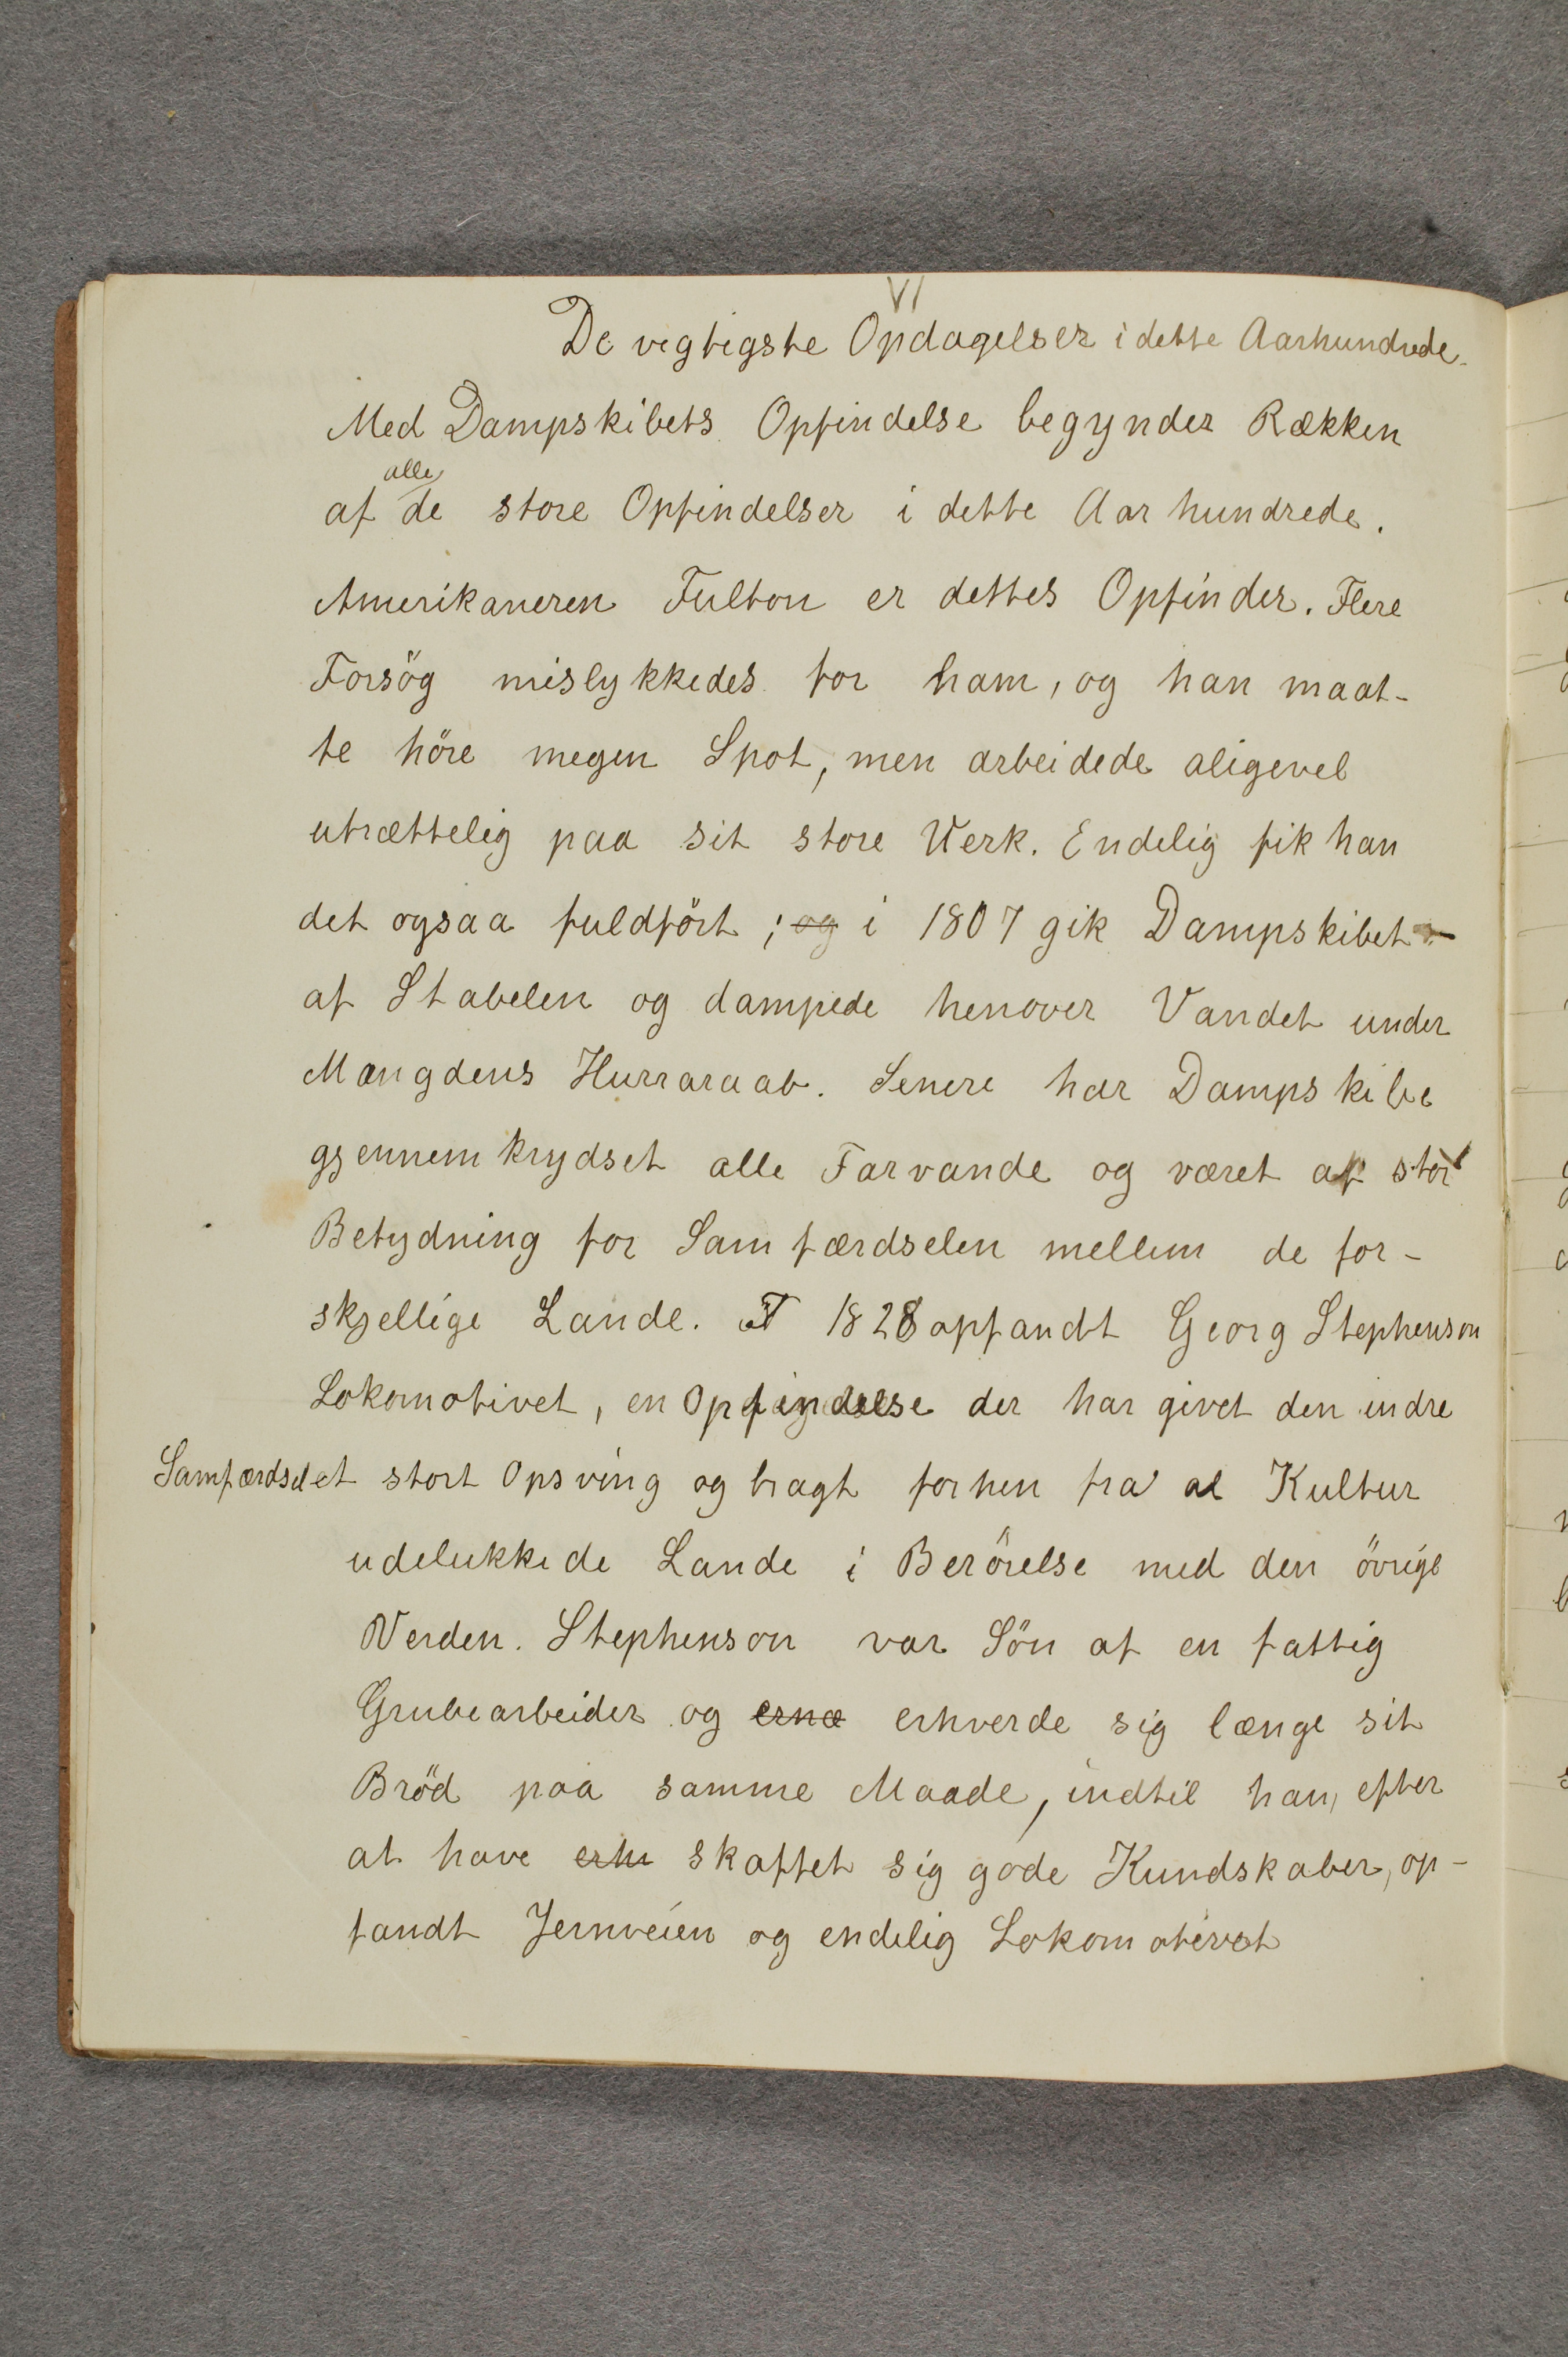 VI
De vigtigste Opdagelser i dette Aarhundrede.
Med Dampskibets Opfindelse begynder Rækken
alle
af de store Opfindelser i dette Aarhundrede.
Amerikaneren Fulton er dettes Opfinder. Flere
Forsög mislykkedes for ham, og han maat-
te höre megen Spot, men arbeidede aligevel
utrættelig paa sit store Verk. Endelig fik han
det ogsaa fuldfört; og i 1807 gik Dampskibet
af Stabelen og dampede henover Vandet under
Mængdens Hurraraab. Senere har Dampskibe
gjennemkrydset alle Farvande og været af stor
Betydning for Samfærdselen mellem de for-
skjellige Lande. I 1828 opfandt Georg Stephenson
Lokomotivet, en Opfindelse der har givet den indre
Samfærdsel et stort Opsving og bragt forhen fra al Kultur
udelukkede Lande i Berörelse med den övrige
Verden. Stephenson var Sön af en fattig
Grubearbeider og ernæ erhverde sig længe sit
Bröd paa samme Maade, indtil han, efter
at have erhv skaffet sig gode Kundskaber, op-
fandt Jernveien og endelig Lokomotivet